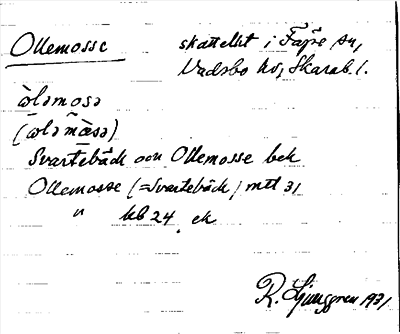 Ollemosse skattelht i Fägre sn,
Vadsbo hd, Skarab. l.
ὼlǝmosǝ
(ωlǝm̃ὰsǝ)
Svartebäck och Ollemosse bek
Ollemosse (=Svartebäck) mtl 31
" kb 24 ek
R. Ljunggren 1931